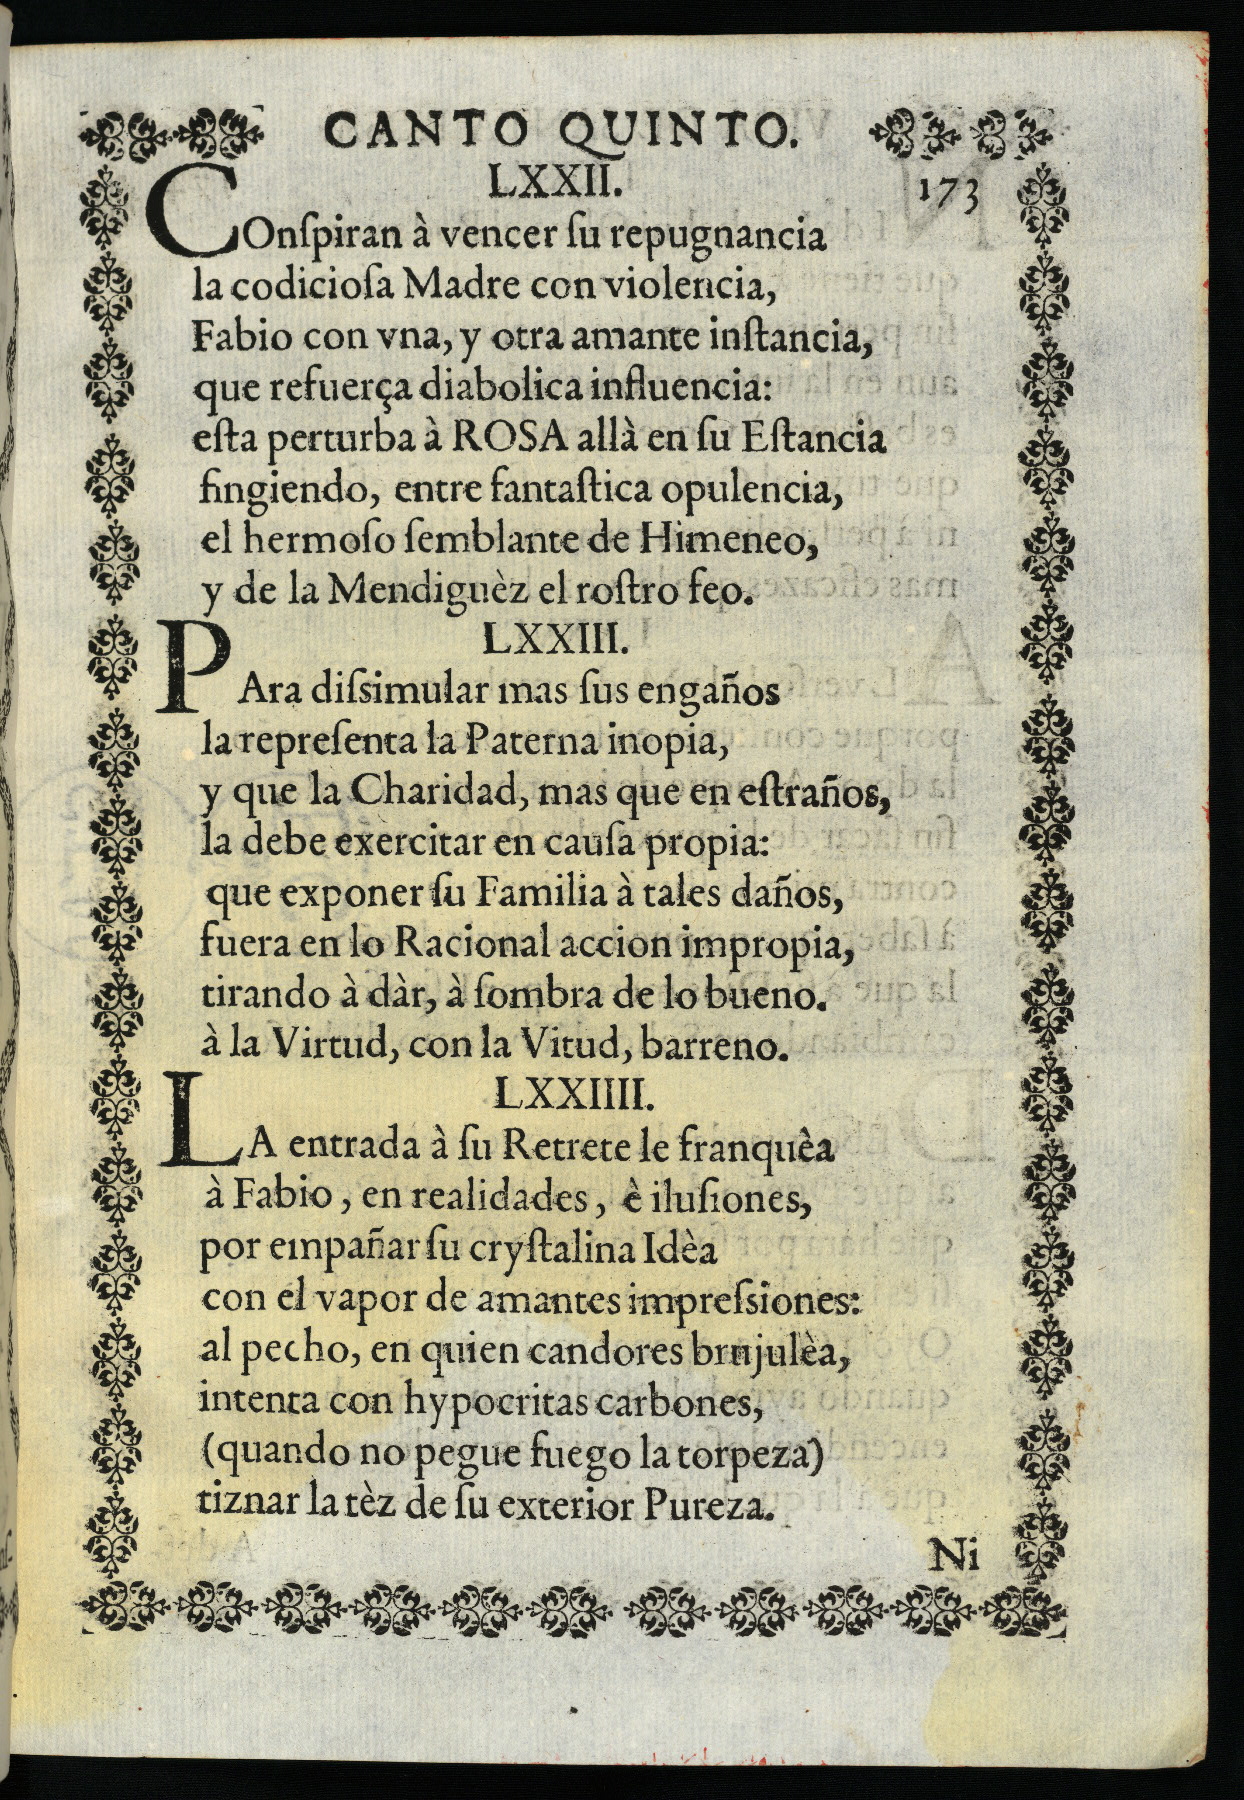 CANTO QUINTO.
LXXII.
173
COnſpiran à vencer ſu repugnancia
la codicioſa Madre con violencia,
Fabio con vna, y otra amante inſtancia,
que refuerça diabolica influencia:
eſta perturba à ROSA allà en ſu Eſtancia
fingiendo, entre fantaſtica opulencia,
el hermoſo ſemblante de Himeneo,
y de la Mendiguèz el roſtro feo.
LXXIII.
PAra diſsimular mas ſus engaños
la repreſenta la Paterna inopia,
y que la Charidad, mas que en eſtraños,
la debe exercitar en cauſa propia:
que exponer ſu Familia à tales daños,
fuera en lo Racional accion impropia,
tirando à dàr, à ſombra de lo bueno.
à la Virtud, con la Vitud, barreno.
LXXIIII.
LA entrada à ſu Retrete le franquèa
à Fabio, en realidades, è iluſiones,
por empañar ſu cryſtalina Idèa
con el vapor de amantes impreſsiones:
al pecho, en quien candores brnjulèa,
intenta con hypocritas carbones,
(quando no pegue fuego la torpeza)
tiznar la tèz de ſu exterior Pureza.
Ni